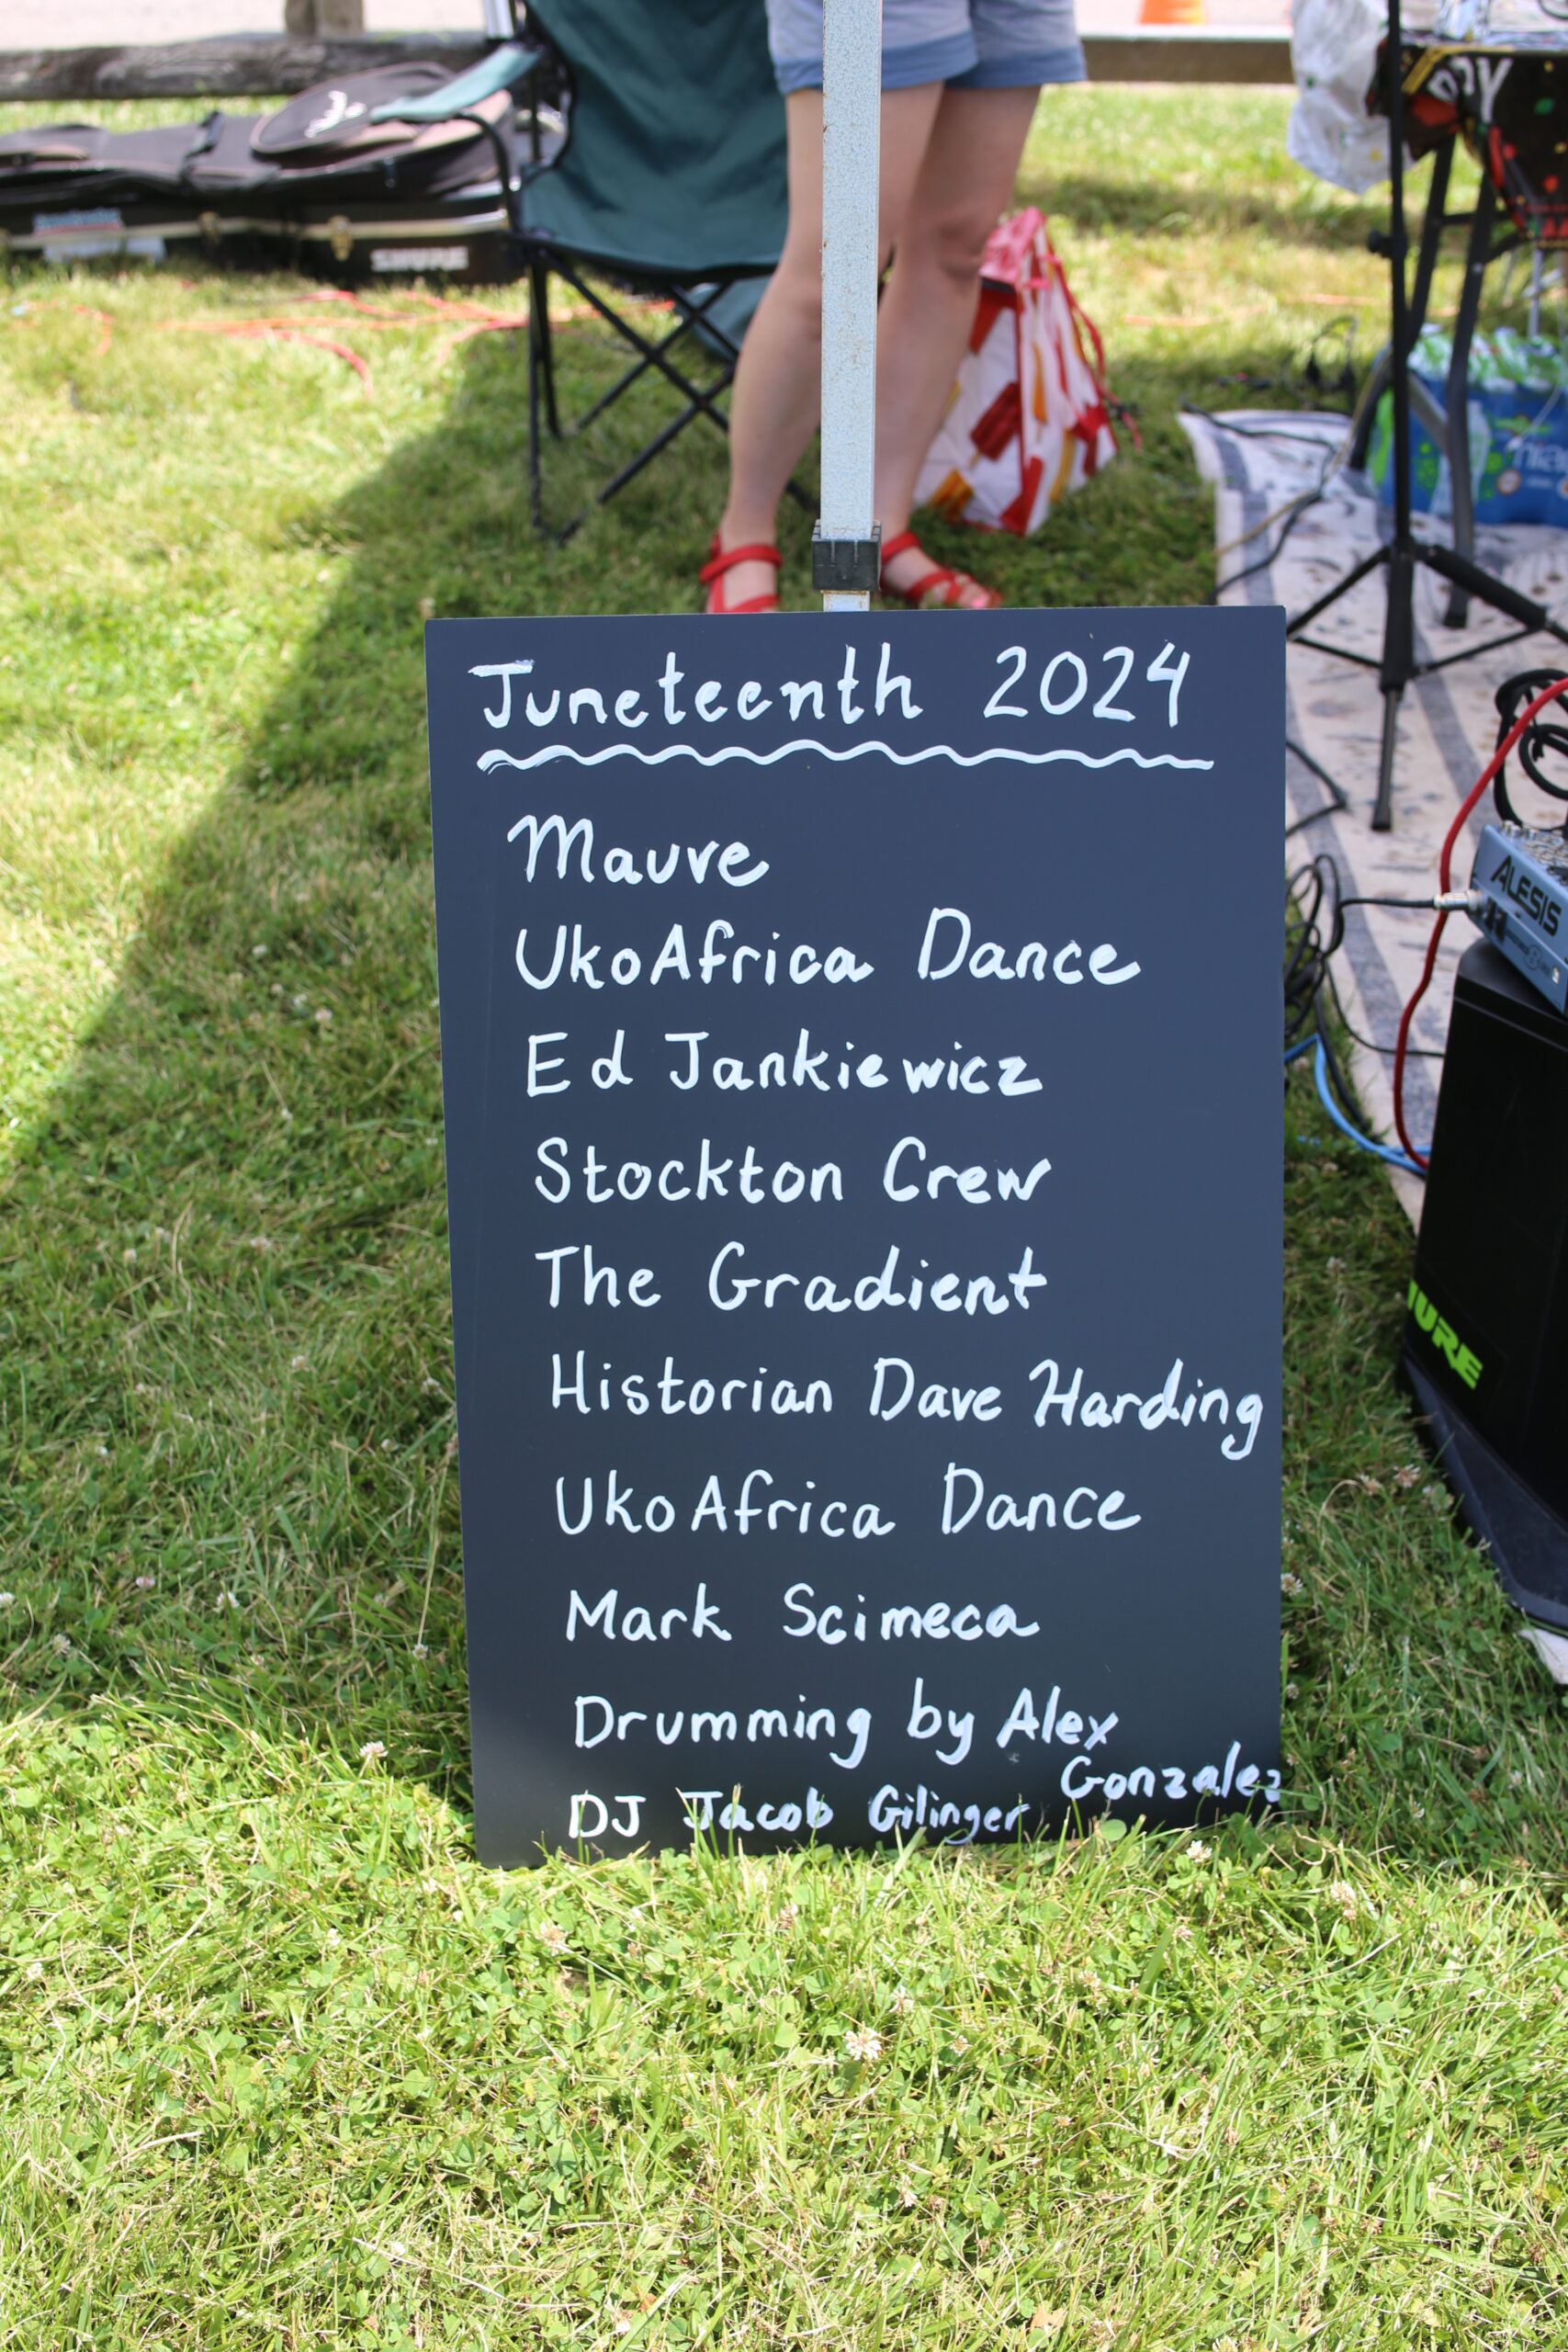 SHURE
Juneteenth 2024
Mauve
UkoAfrica Dance
Ed Jankiewicz
Stockton Crew
The Gradient
Historian Dave Harding
UkoAfrica Dance
Mark Scimeca
Drumming by Alex
Gonzalez
DJ Jacob Gilinger
ALESIS
URE